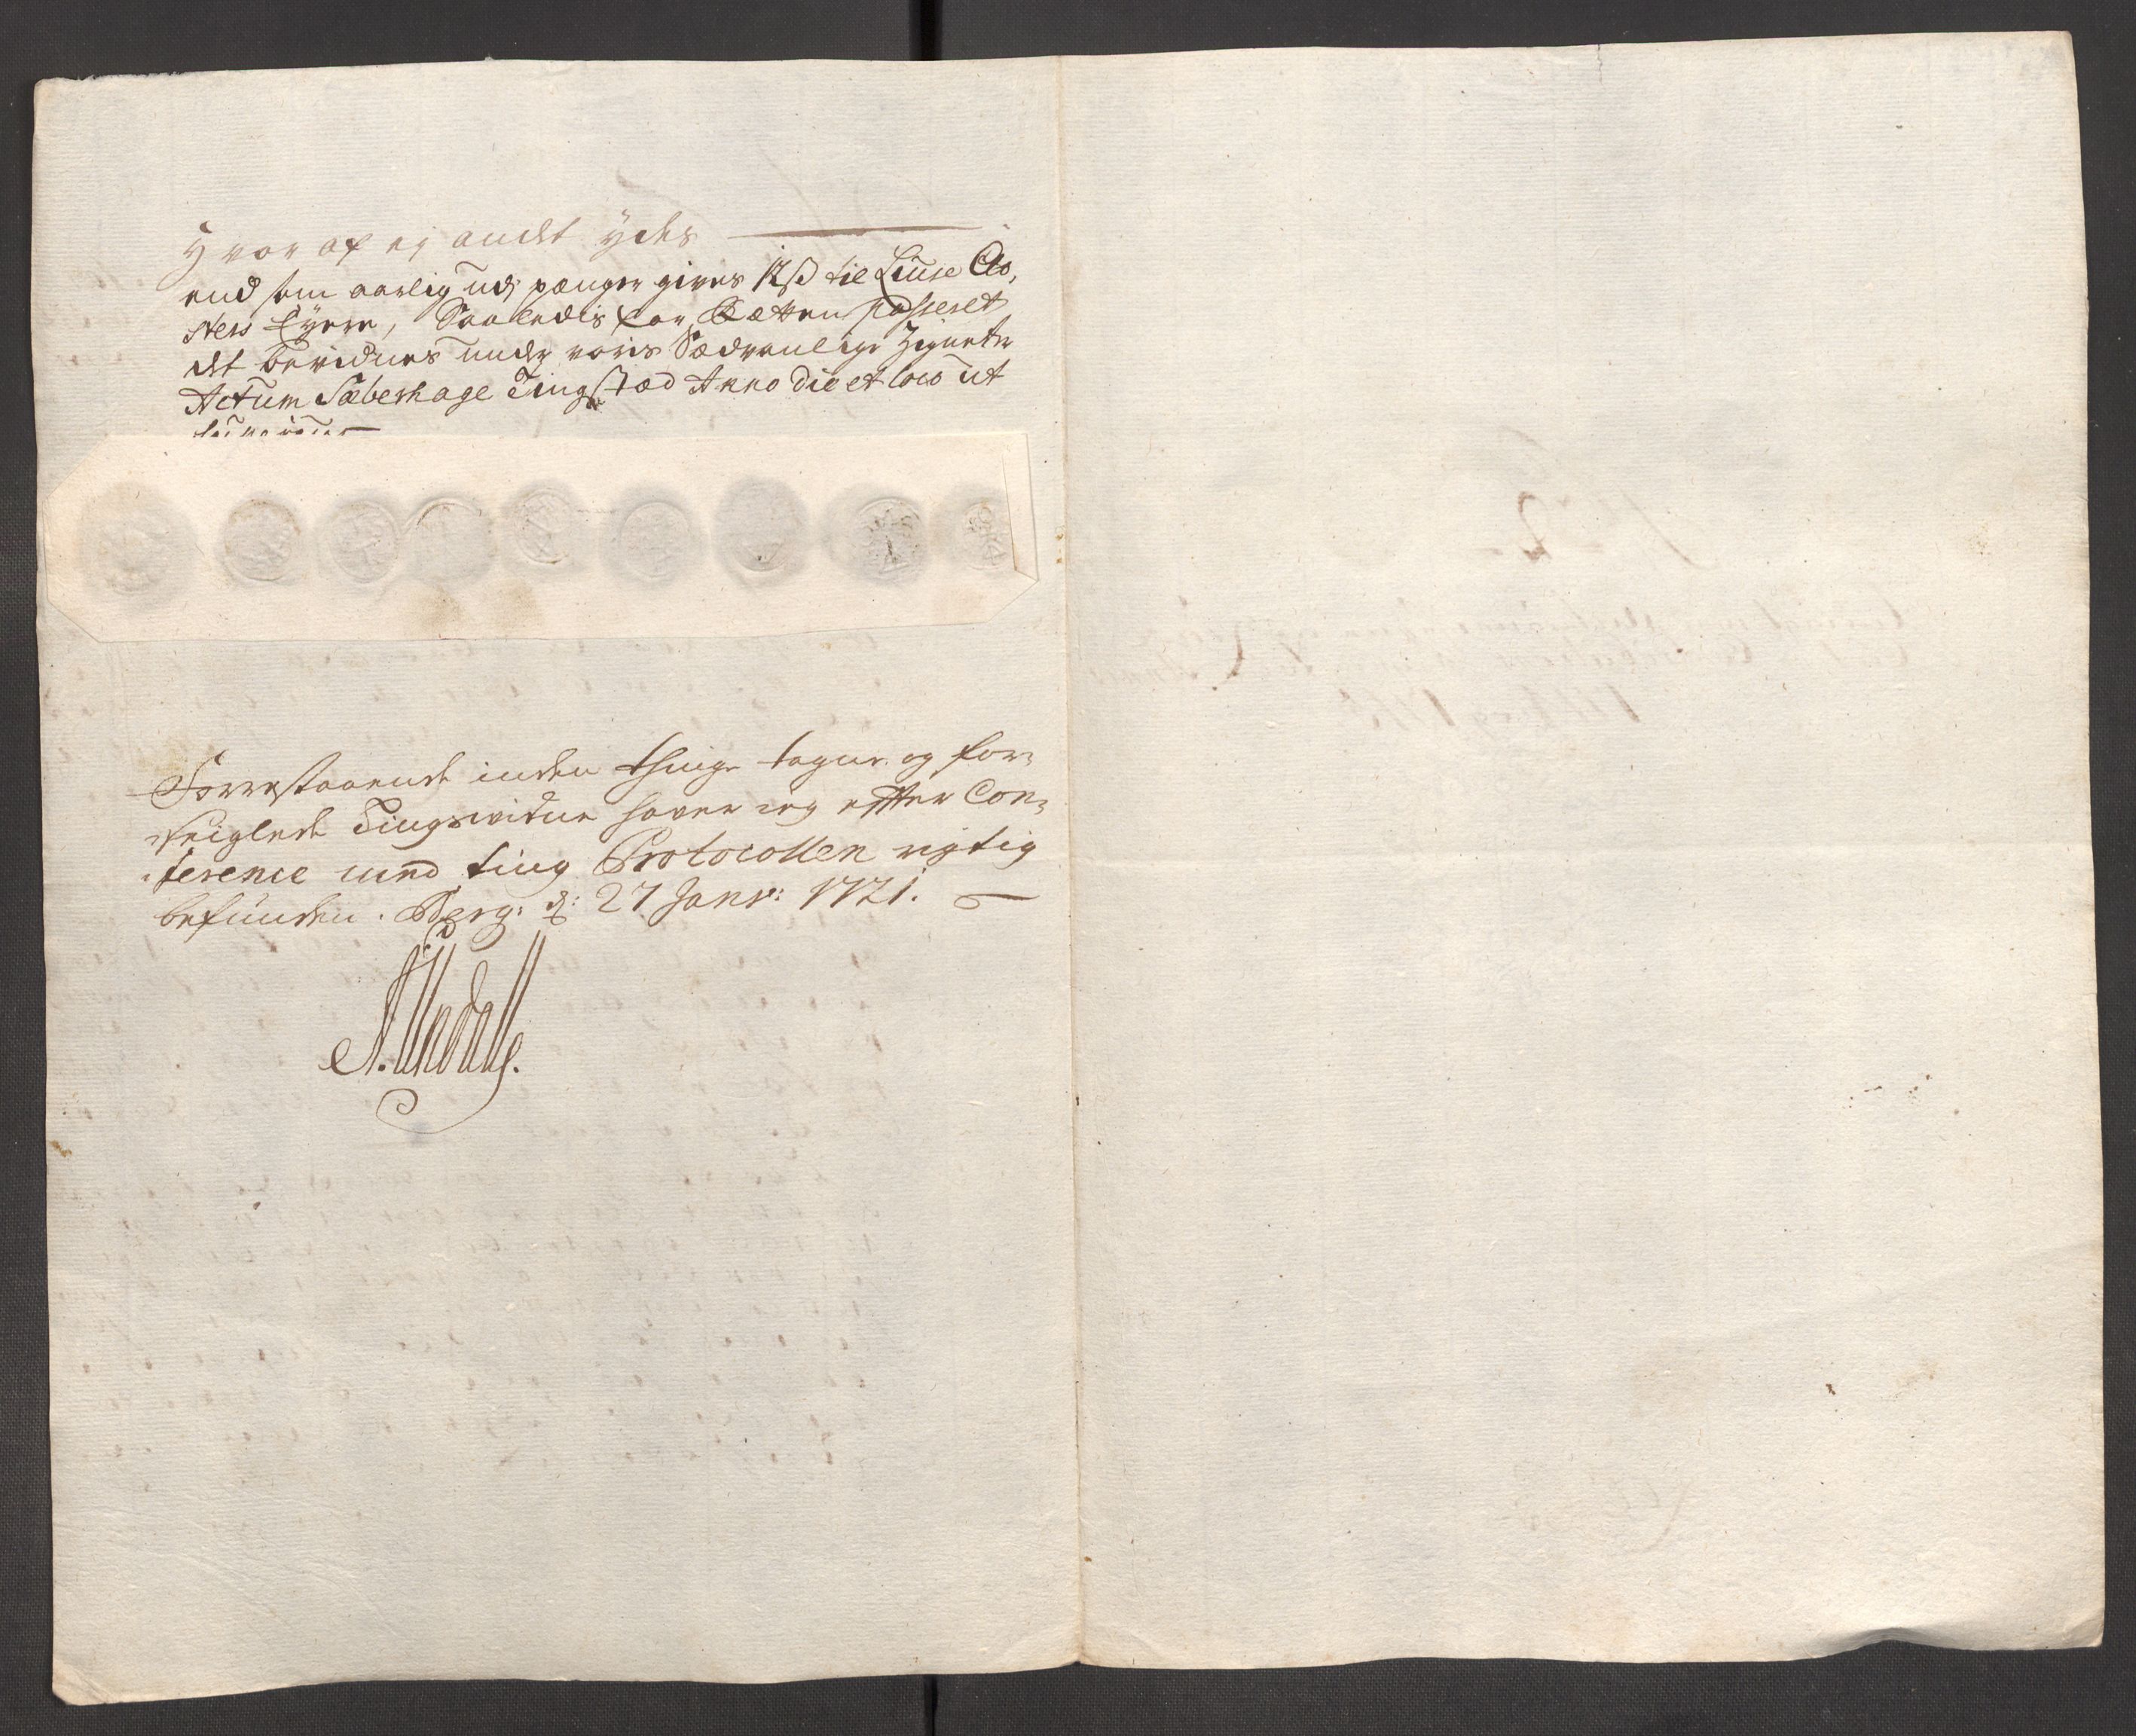 Hvor af ej andet ydes
end som aarlig udj penger gives 12 ß til Liuse Clo,
sters Eyere, Saaledis for Rætten passeret
det bevidnes under voris Sædvanlige Zigneter
Actum Sæbershage Tingstæd Anno die et loco ut
supra
Forrestaaende inden Tings tagne og for,
seiglede Tingsvidne haver jeg effter Con,
ference med ting Protocollen rigtig
befunden. Berg: d: 27 Janv: 1721.